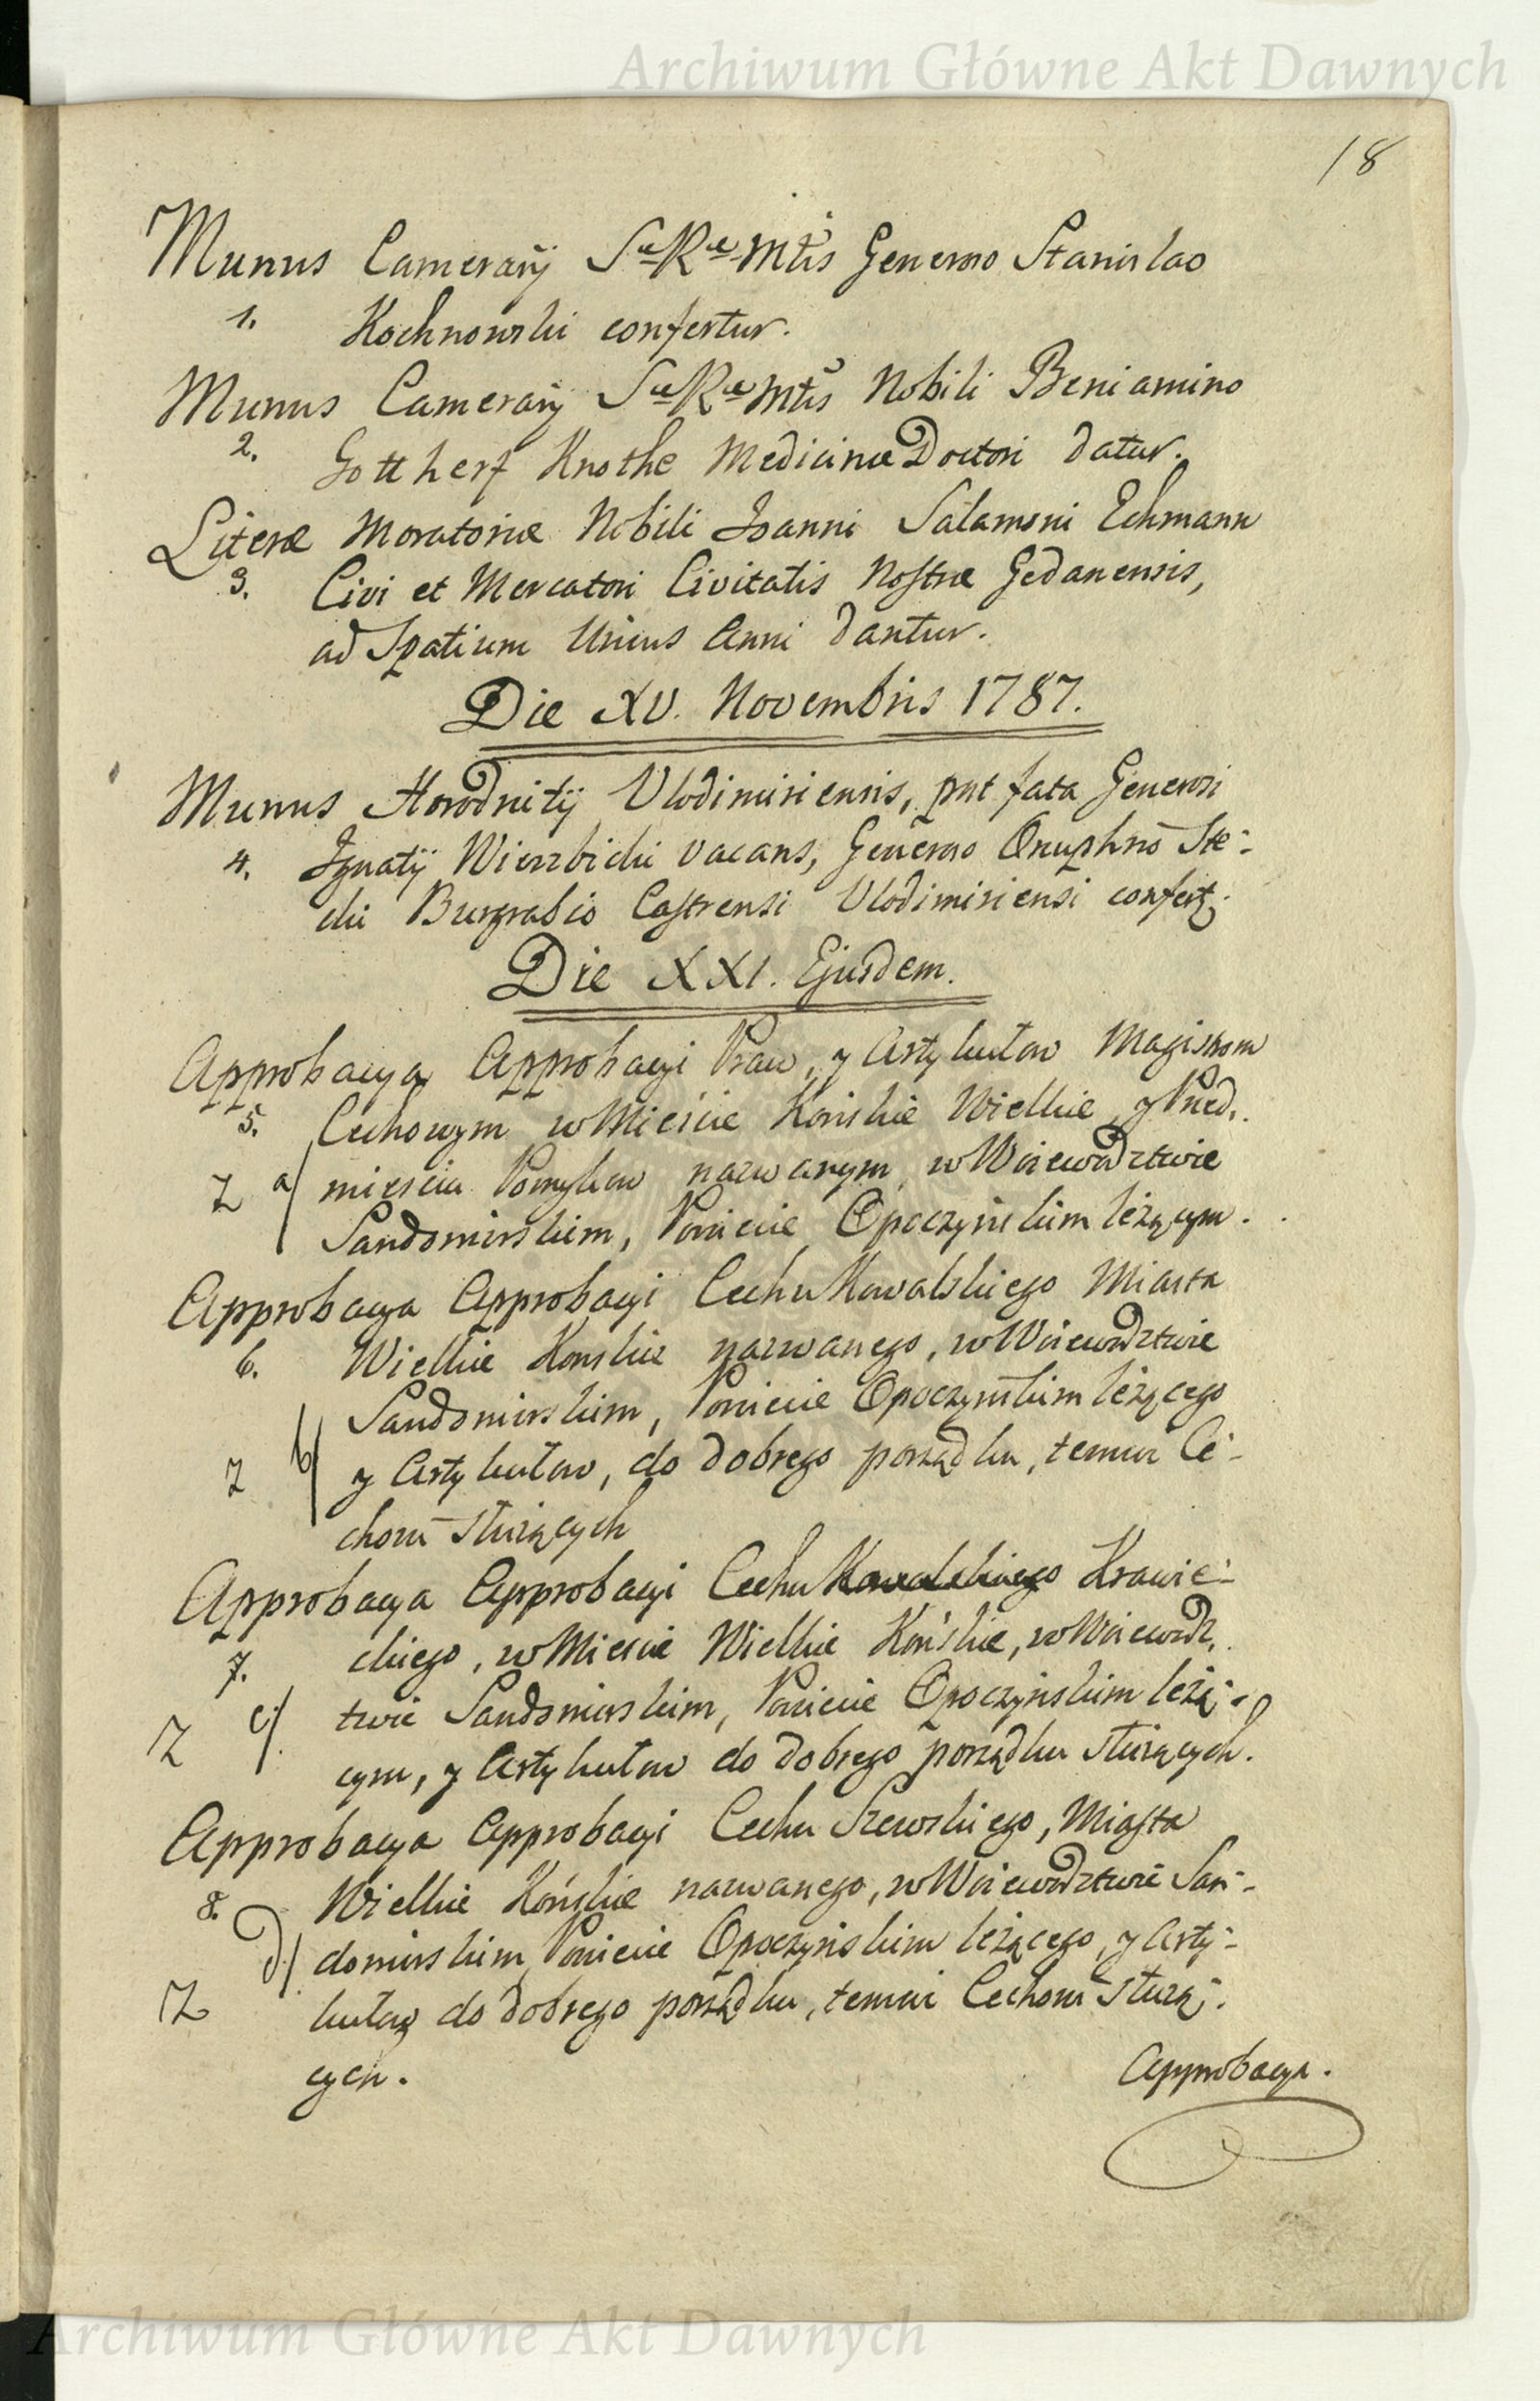 Archiwum Główne Akt Dawnych
18
Munus Camerarij Sæ Ræ Mtis Generoso Stanislao
1. Kochnowski confertur.
Munus Camerarij Sæ Ræ Mtis Nobili Beniamino
2. Gottherf Knothe Medicinæ Doctori datur.
Literæ Moratoriæ Nobili Joanni Salamoni Echmann
3. Civi et Mercatori Civitatis Nostræ Gedanensis,
ad Spatium Unius Anni dantur.
Die XV. Novembris 1787.
Munus Horodnitij Vlodimiriensis, pnt fata Generosi
4. Ignatij Wierzbicki vacans, Generoso Onuphrio Ste-
cki Burgrabio Castrensi Vlodimiriensi confert.
Die XXI. Ejusdem.
Approbacya Approbacyi Praw, y Artykułow Magistrom
5. Cechowym w Mieście Końskie Wielkie, y Przed.
Z a/ mieściu Pomykow nazwanym, w Woiewodztwie
Sandomirskim, Powiecie Opoczyńskim leżącym.
Approbacya Approbacyi Cechu Kowalskiego Miasta
6. Wielkie Konskie nazwanego, w Woiewodztwie
Sandomirskim, Powiecie Opoczynskim leżącego
Z b/ y Artykułow, do dobrego porządku, temuż Ce-
chowi służących
Approbacya Approbacyi Cechu Kowalskiego Krawie-
7. ckiego, w Miescie Wielkie Końskie, w Woiewodz.
Z c/ twie Sandomirskim, Powiecie Opoczyńskim leżą-
cym, y Artykułow do dobrego porządku służących.
Approbacya Approbacyi Cechu Szewskiego, Miasta
8. Wielkie Końskie nazwanego, w Woiewodztwie San-
d/ domirskim, Powiecie Opoczyńskim leżącego, y Arty-
Z kułow do dobrego porządku, temuż Cechowi służą-
cych.
Approbacya.
Archiwum Główne Akt Dawnych